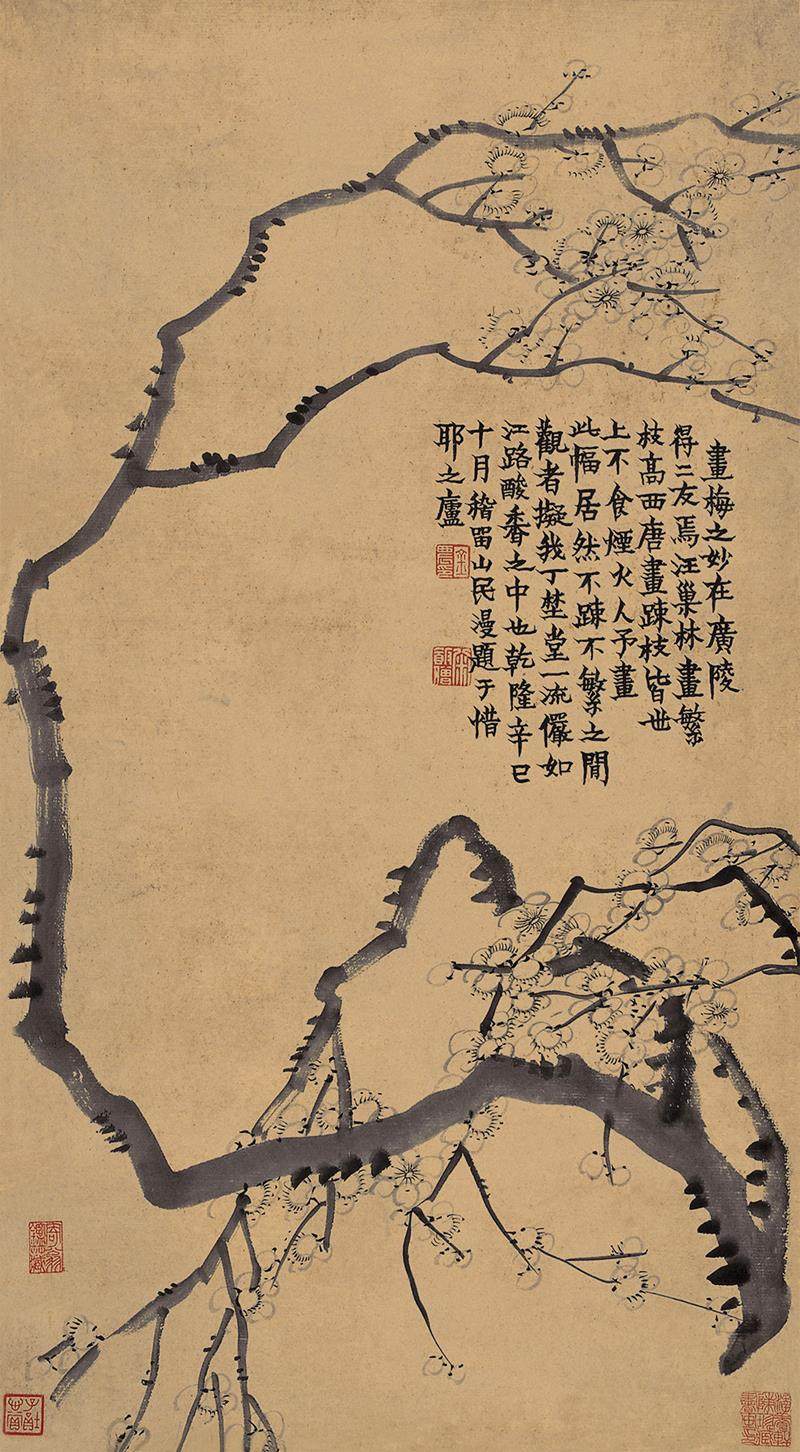 畫梅之妙在廣陵
得二友焉汪巢林畫繁
枝高西唐畫踈枝皆世
上不食煙火人予畫
此幅居然不踈不繁之間
觀者擬我丁埜堂一流儼如
江路酸香之中也乾隆辛巳
十月稽留山民漫題于惜
耶之廬